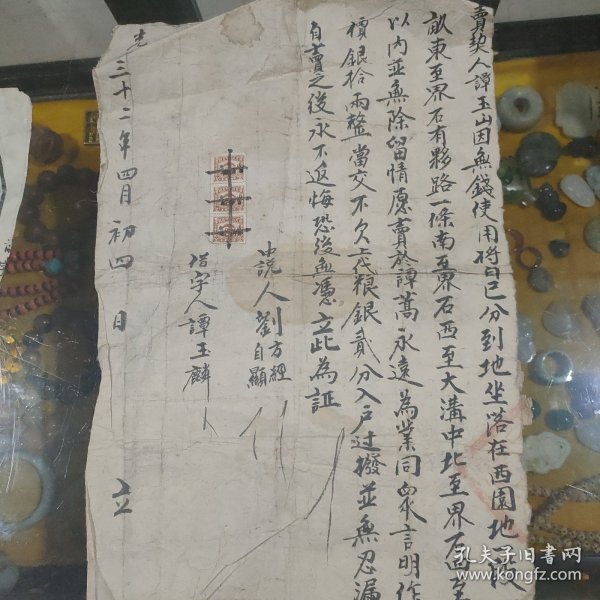 賣契人譚玉山因無錢使用將自己分到地坐落在西園地
畝東至界石有夥路一條南至界石西至大溝中北至界石四至
以內並無除留情愿賣於譚萬永遠為業同眾言明作
價銀拾兩整當交不欠代粮銀貳分入戶过撥並無忍漏
自賣之後永不返悔恐後無憑立此為証
說人劉方經
自顯
字人譚玉麟
光 三十二年四月初四日 立
孔夫子旧书网
www.kongfz.com